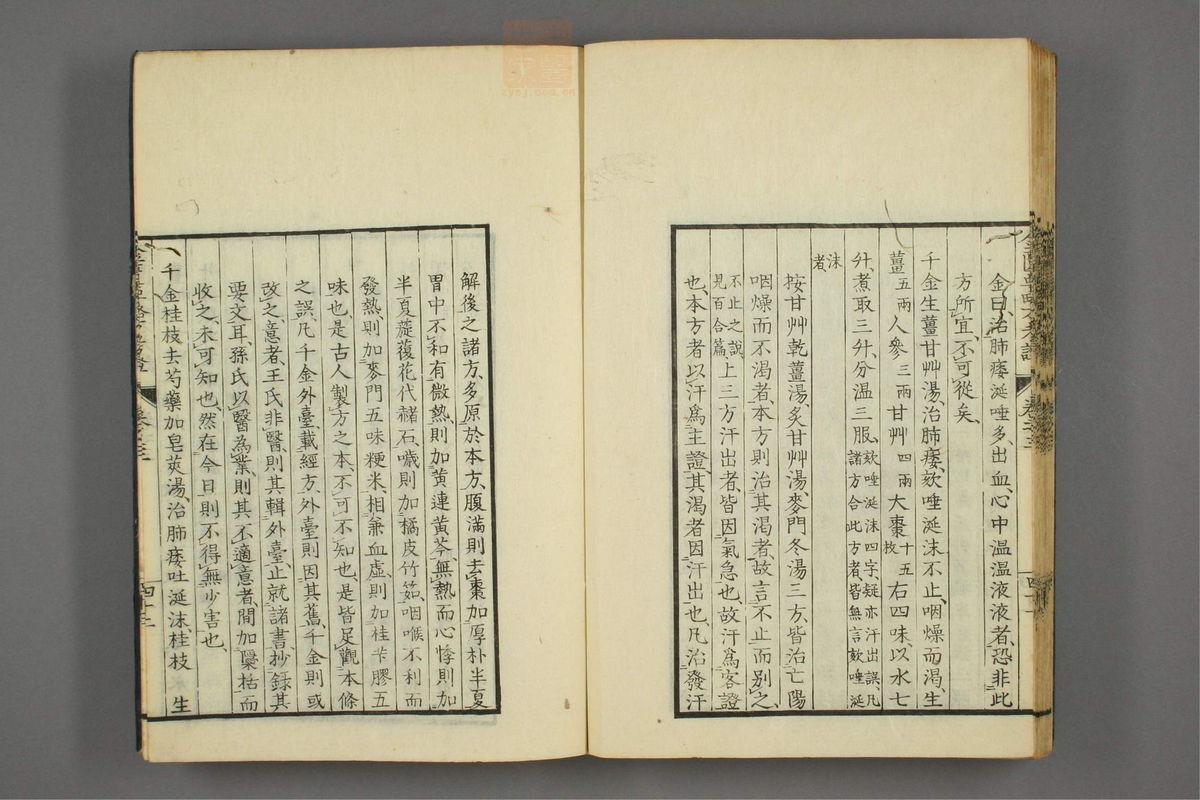 金曰、治肺痿涎唾多、出血、心中温温液液者、恐非此
方所宜、不可從矣、
千金生薑甘艸湯、治肺痿、欬唾涎沫不止、咽燥而渴、生
薑五兩人參三兩甘艸四兩大棗十五枚右四味、以水七
升、煮取三升、分温三服、欬唾涎沫四字、疑亦汗出誤、凡諸方合此方者、皆無言欬唾涎
沫者
按甘艸乾薑湯、炙甘艸湯、麥門冬湯三方、皆治亡陽
咽燥而不渴者、本方則治其渴者、故言不止而別之、
不止之說、見百合篇、上三方汗出者、皆因氣急也、故汗爲客證
也、本方者以汗爲主證、其渴者因汗出也、凡治發汗
解後之諸方、多原於本方、腹滿則去棗加厚朴半夏
胃中不和有微熱、則加黃連黃芩、無熱而心悸則加
半夏、蔙葍花代赭石、噦則加橘皮竹茹、咽喉不利而
發熱、則加麥門五味粳米、相兼血虛、則加桂芐膠五
味也、是古人製方之本、不可不知也、是皆足觀本條
之誤、凡千金外臺、載經方、外臺則因其舊、千金則或
改之、意者、王氏非醫、則其輯外臺、止就諸書抄錄其
要文耳、孫氏以醫為業、則其不適意者、間加檃栝而
收之、未可知也、然在今日則不得無少害也、
千金桂枝去芍藥加皂莢湯、治肺痿吐涎沫、桂枝 生
卷之三
四十三